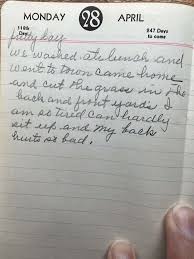 MONDAY 98 APRIL
118th Day 247 Days to come
day
we washed ate lunch and
went to town came home
and cut the grass in the
back and front yards I
am so tired can hardly
sit up and my back
hurts so bad.